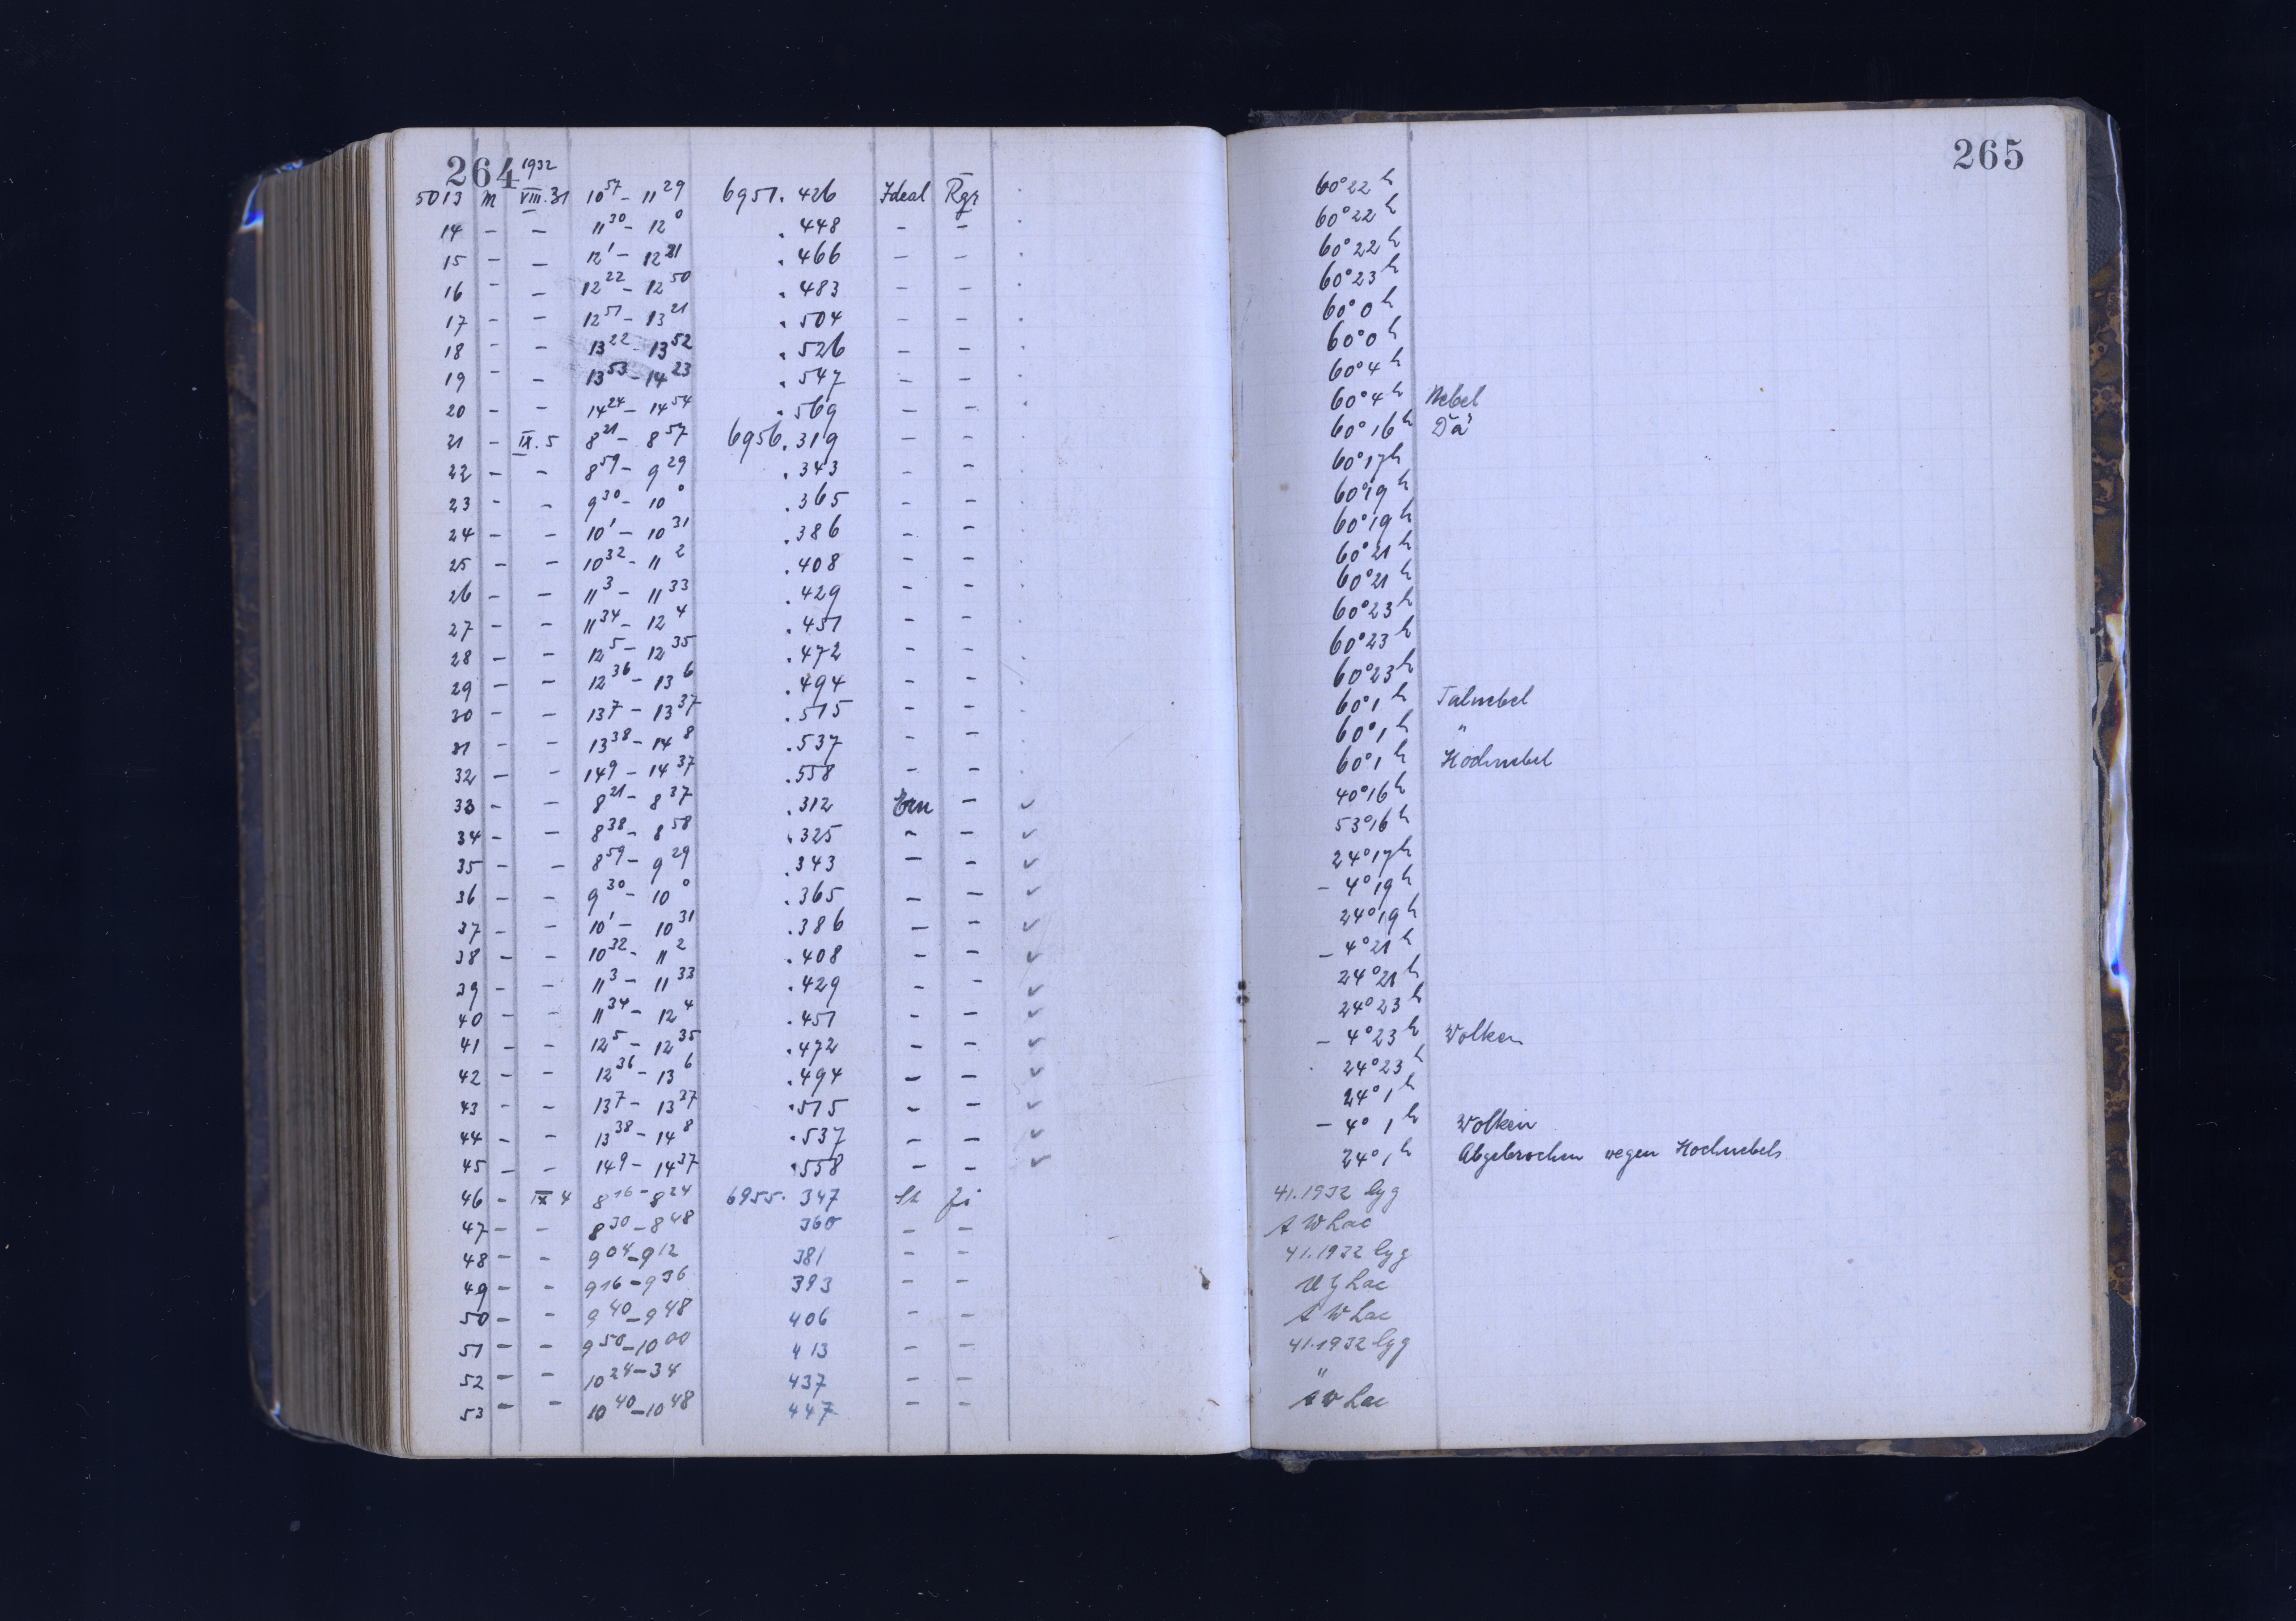 264 1932 265
5013 M VIII.31 10 57 – 11 29 6951.426 Ideal Rgr . 60° 22 h
14 – – 11 30 – 12 0 .448 – – . 60° 22 h
15 – – 12 1 – 12 21 .466 – – . 60° 22 h
16 – – 12 22 – 12 50 .483 – – . 60° 23 h
17 – – 12 51 – 13 21 .504 – – . 60° 0 h
18 – – 13 22 – 13 52 .526 – – . 60° 0 h
19 – – 13 53 – 14 23 .547 – – . 60° 4 h
20 – – 14 24 – 14 54 .569 – – . 60° 4 h Nebel
21 – IX.5 8 21 – 8 57 6956.319 – – . 60° 16 h Dä
22 – – 8 59 – 9 29 .343 – – . 60° 17 h
23 – – 9 30 – 10 0 .365 – – . 60° 19 h
24 – – 10 1 – 10 31 .386 – – . 60° 19 h
25 – – 10 32 – 11 2 .408 – – . 60° 21 h
26 – – 11 3 – 11 33 .429 – – . 60° 21 h
27 – – 11 34 – 12 4 .451 – – . 60° 23 h
28 – – 12 5 – 12 35 .472 – – . 60° 23 h
29 – – 12 36 – 13 6 .494 – – . 60° 23 h
30 – – 13 7 – 13 37 .515 – – . 60° 1 h Talnebel
31 – – 13 38 – 14 8 .537 – – . 60° 1 h "
32 – – 14 9 – 14 37 .558 – – . 60° 1 h Hochnebel
33 – – 8 21 – 8 37 .312 Ern – ✓ 40° 16 h
34 – – 8 38 – 8 58 .325 – – ✓ 53° 16 h
35 – – 8 59 – 9 29 .343 – – ✓ 24° 17 h
36 – – 9 30 – 10 0 .365 – – ✓ – 4° 19 h
37 – – 10 1 – 10 31 .386 – – ✓ 24° 19 h
38 – – 10 32 – 11 2 .408 – – ✓ – 4° 21 h
39 – – 11 3 – 11 33 .429 – – ✓ 24° 21 h
40 – – 11 34 – 12 4 .451 – – ✓ 24° 23 h
41 – – 12 5 – 12 35 .472 – – ✓ – 4° 23 h Wolken
42 – – 12 36 – 13 6 .494 – – ✓ 24° 23 h
43 – – 13 7 – 13 37 .515 – – ✓ 24° 1 h
44 – – 13 38 – 14 8 .537 – – ✓ – 4° 1 h Wolken
45 – – 14 9 – 14 37 .558 – – ✓ 24° 1 h Abgebrochen wegen Hochnebels
46 – IX 4 8 16 – 8 24 6955.347 41.1932 Cyg
47 – – 8 30 – 8 48 360 – – AW Lac
48 – – 9 04 – 9 12 381 – – 41.1932 Cyg
49 – – 9 16 – 9 36 393 – – Lac
50 – – 9 40 – 9 48 406 – – AW Lac
51 – – 9 50 – 10 00 413 – – 41.1932 Cyg
52 – – 10 24 – 34 437 – – "
53 – – 10 40 – 10 48 447 – – AW Lac